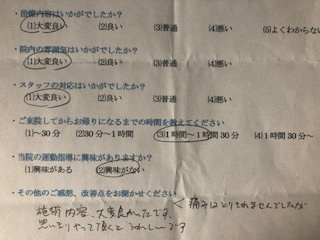 ・治療内容はいかがでしたか？
(1)大変良い (2)良い (3)普通 (4)悪い (5)よくわからない
・院内の雰囲気はいかがでしたか？
(1)大変良い (2)良い (3)普通 (4)悪い
・スタッフの対応はいかがでしたか？
(1)大変良い (2)良い (3)普通 (4)悪い
・ご来院してからお帰りになるまでの時間を教えてください
(1)～30分 (2)30分～1時間 (3)1時間～1時間30分 (4)1時間30分～
・当院の運動指導に興味がありますか？
(1)興味がある (2)興味がない
・その他のご感想、改善点をお聞かせください
痛みはとりきれませんでしたが
施術内容、大変良かったです。
思いきりやって頂くとうれしいです